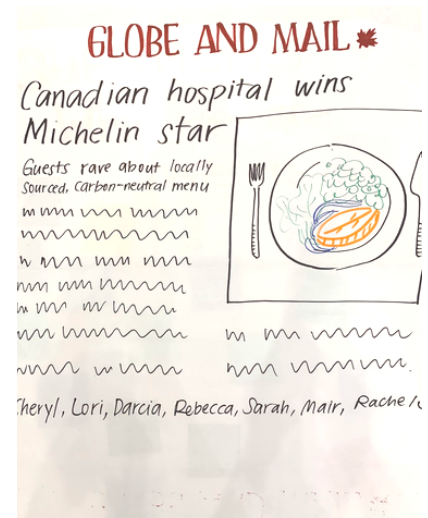 GLOBE AND MAIL
Canadian hospital wins
Michelin star
Guests rave about locally
sourced, carbon-neutral menu
Cheryl, Lori, Darcia, Rebecca, Sarah, Mair, Rachel